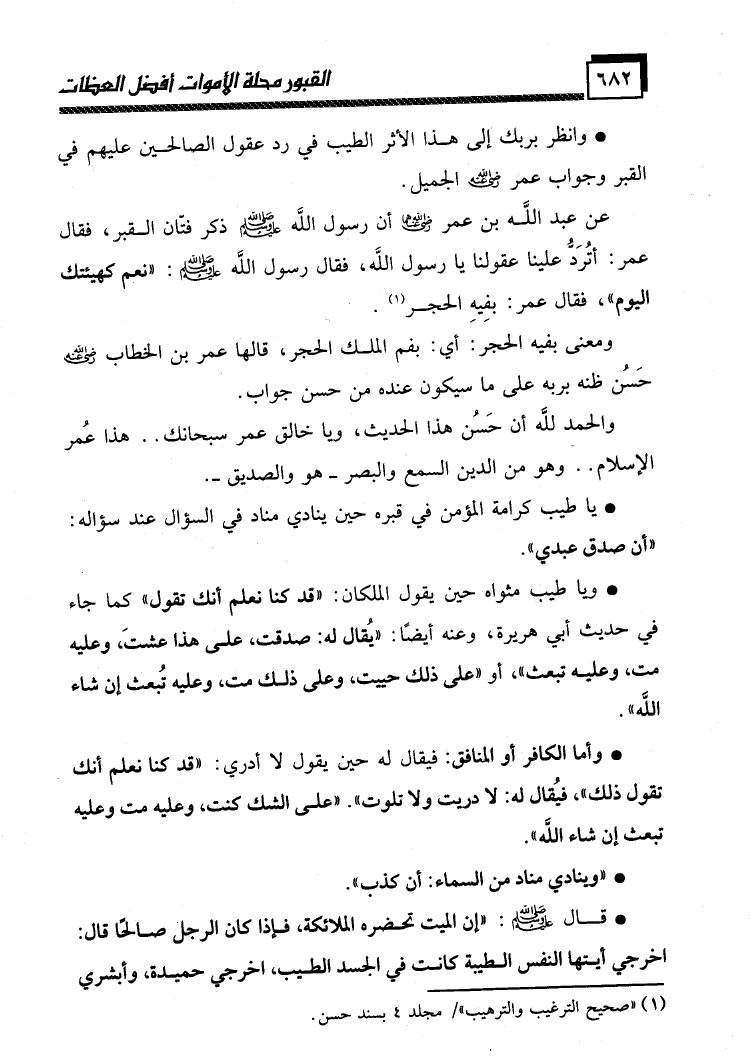 ٦٨٢
القبور محلة الأموات أفضل العظات
● وانظر بربك إلى هـذا الأثر الطيب في رد عقول الصالحـين عليهم في
القبر وجواب عمر رضي الله عنه الجميل.
عن عبد اللَّـه بن عمر رضي الله عنهما أن رسول اللَّه ﷺ ذكر فتّان الـقبر، فقال
عمر: أتُرَدُّ علينا عقولنا يا رسول اللَّه، فقال رسول اللَّه ﷺ: «نعم كهيئتك
اليوم»، فقال عمر: بفِيهِ الحجـر(١).
ومعنى بفيه الحجر: أي: بفم الملـك الحجر، قالها عمر بن الخطاب رضي الله عنه
حَسُن ظنه بربه على ما سيكون عنده من حسن جواب.
والحمد للَّه أن حَسُن هذا الحديث، ويا خالق عمر سبحانك.. هذا عُمر
الإسلام.. وهو من الدين السمع والبصر ـ هو والصديق ـ.
● يا طيب كرامة المؤمن في قبره حين ينادي مناد في السؤال عند سؤاله:
«أن صدق عبدي».
● ويا طيب مثواه حين يقول الملكان: «قد كنا نعلم أنك تقول» كما جاء
في حديث أبي هريرة، وعنه أيضًا: «يُقال له: صدقت، علـى هذا عشتَ، وعليه
مت، وعليـه تبعث»، أو «على ذلك حييت، وعلى ذلـك مت، وعليه تُبعث إن شاء
اللَّه».
● وأما الكافر أو المنافق: فيقال له حين يقول لا أدري: «قد كنا نعلم أنك
تقول ذلك»، فيُقال له: لا دريت ولا تلوت». «علـى الشك كنت، وعليه مت وعليه
تبعث إن شاء اللَّه».
● «وينادي مناد من السماء: أن كذب».
● قـــال ﷺ: «إن الميت تحضره الملائكة، فـإذا كان الرجل صـالحًا قال:
اخرجي أيـتها النفس الـطيبة كانـت في الجسد الطيب، اخرجي حميدة، وأبشري
(١) «صحيح الترغيب والترهيب»/ مجلد ٤ بسند حسن.